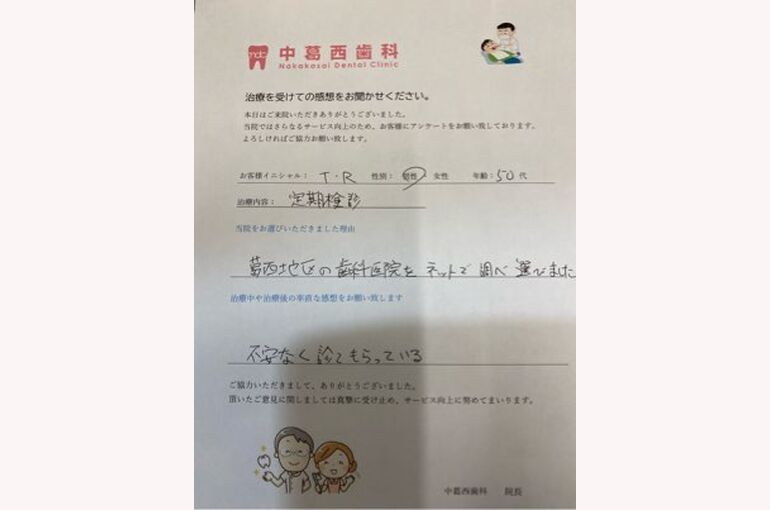 ndc
中葛西歯科
Nakakasai Dental Clinic
治療を受けての感想をお聞かせください。
本日はご来院いただきありがとうございました。
当院ではさらなるサービス向上のため、お客様にアンケートをお願い致しております。
よろしければご協力お願い致します。
お客様イニシャル: T・R 性別: 男性 女性 年齢:50代
治療内容: 定期検診
当院をお選びいただきました理由
葛西地区の歯科医院をネットで調べ選びました
治療中や治療後の率直な感想をお願い致します
不安なく診てもらっている
ご協力いただきまして、ありがとうございました。
頂いたご意見に関しましては真摯に受け止め、サービス向上に努めてまいります。
中葛西歯科 院長